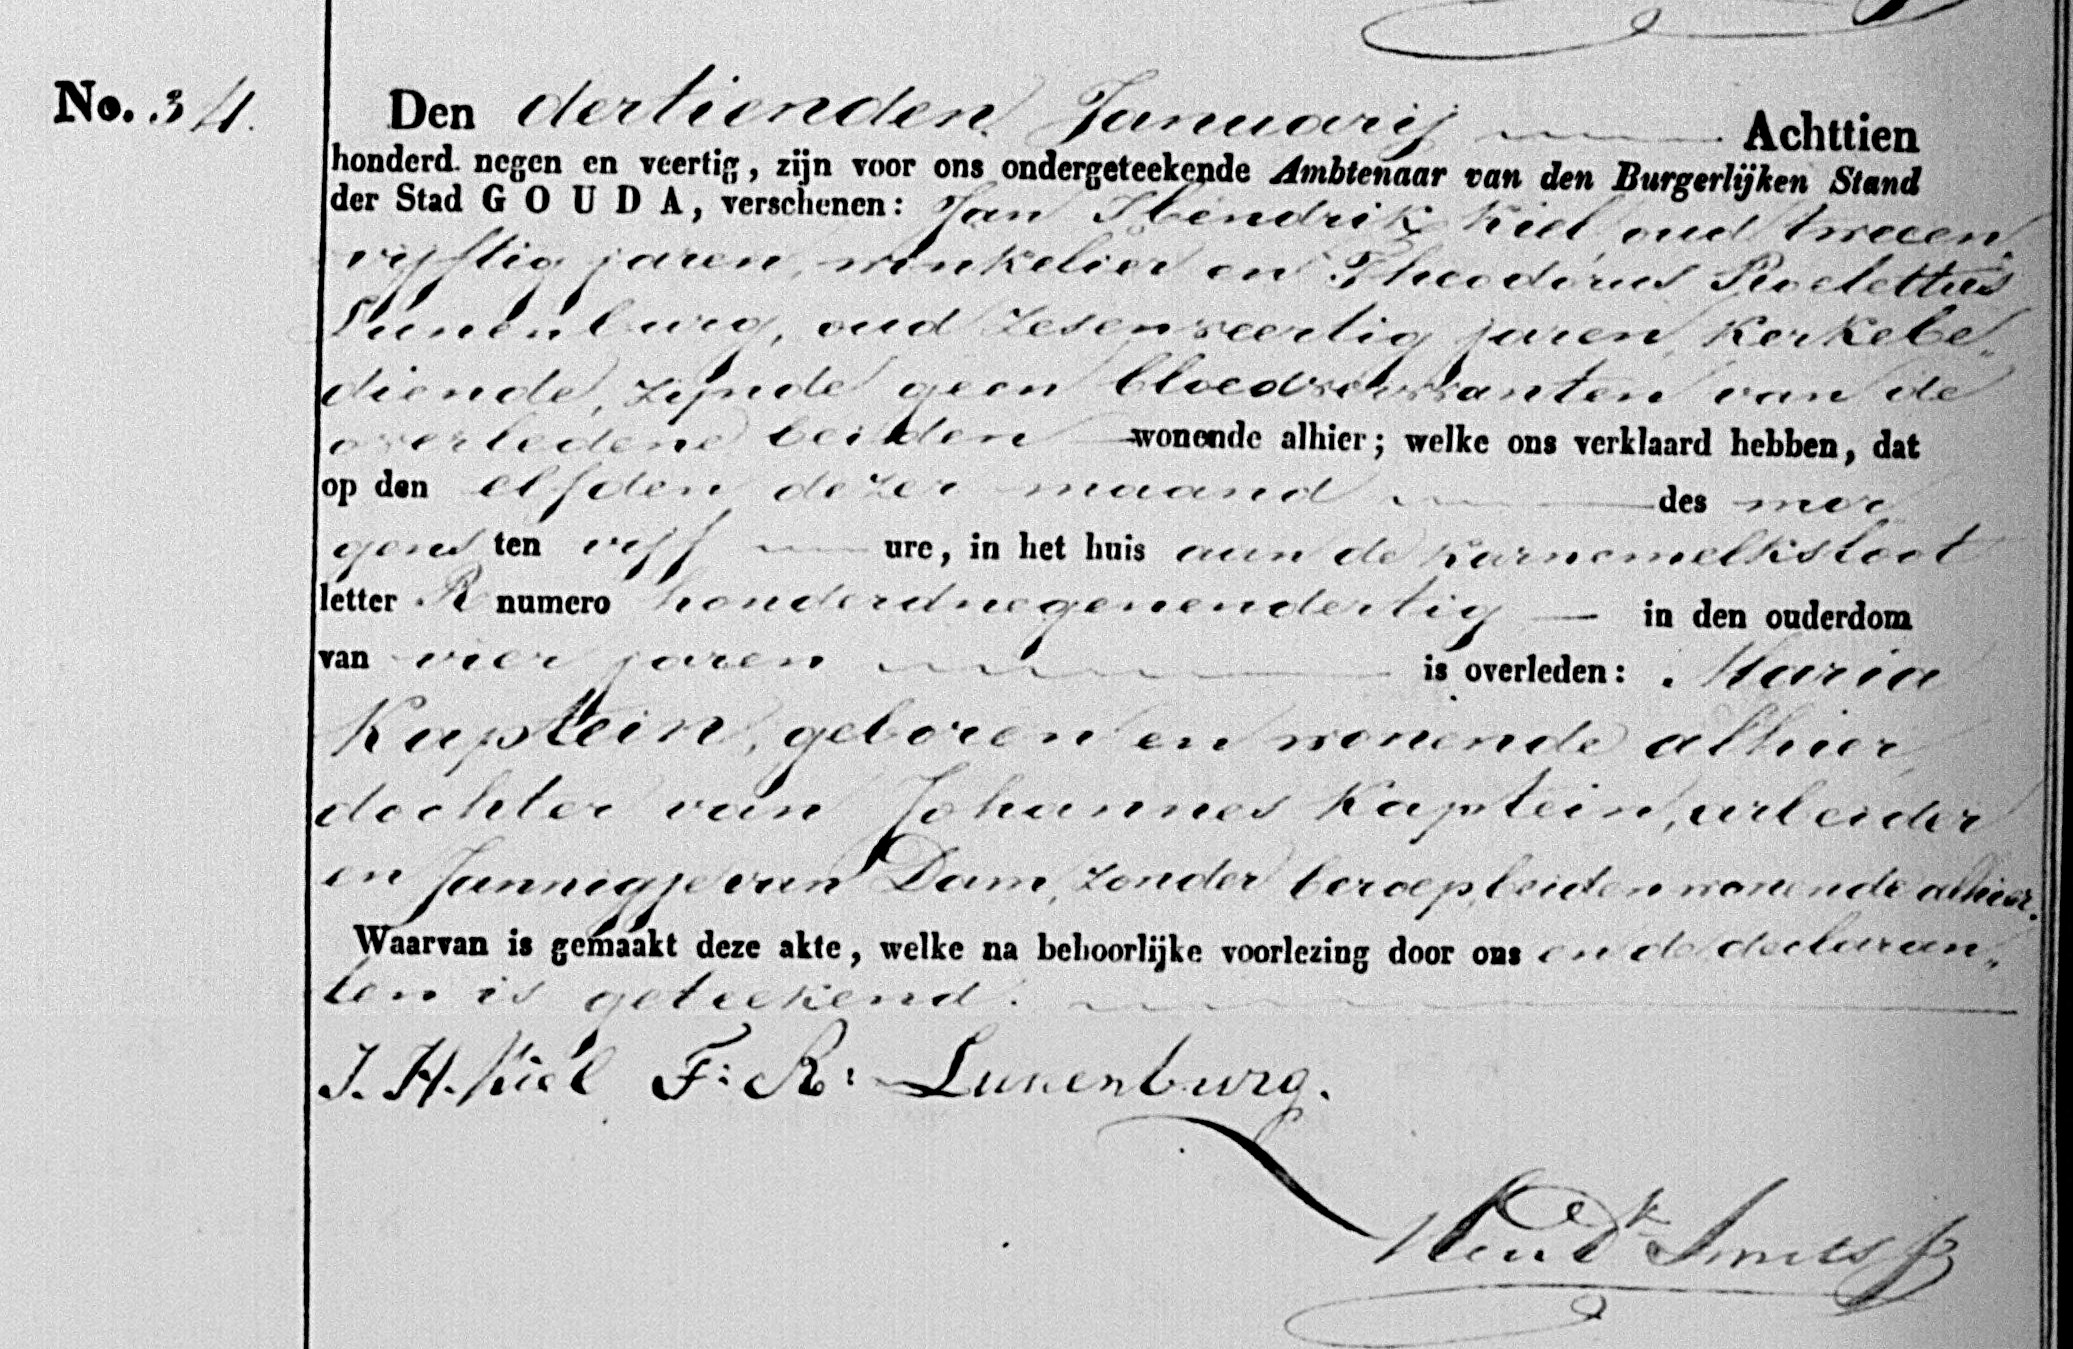 No. 34.
Den dertienden Januarij Achttien
honderd negen en veertig, zijn voor ons ondergeteekende Ambtenaar van den Burgerlijken Stand
der Stad GOUDA, verschenen: Jan Hendrik Kiel oud tweeen
vijftig jaren, winkelier en Theodorus Roelettus
Lunenburg, oud zesenveertig jaren, kerkebe„
diende, zijnde geen bloedverwanten van de
overledene beiden wonende alhier; welke ons verklaard hebben, dat
op den elfden dezer maand des mor
gens ten vijf ure, in het huis aan de Karnemelksloot
letter R numero honderdnegenendertig in den ouderdom
van vier jaren is overleden: Maria
Kaptein, geboren en wonende alhier,
dochter van Johannes Kaptein, arbeider
en Jannigje van Dam, zonder beroep, beiden wonende alhier.
Waarvan is gemaakt deze akte, welke na behoorlijke voorlezing door ons en de declaran„
ten is geteekend.
J. H. Kiel F: R: Lunenburg.
Hendk Smits